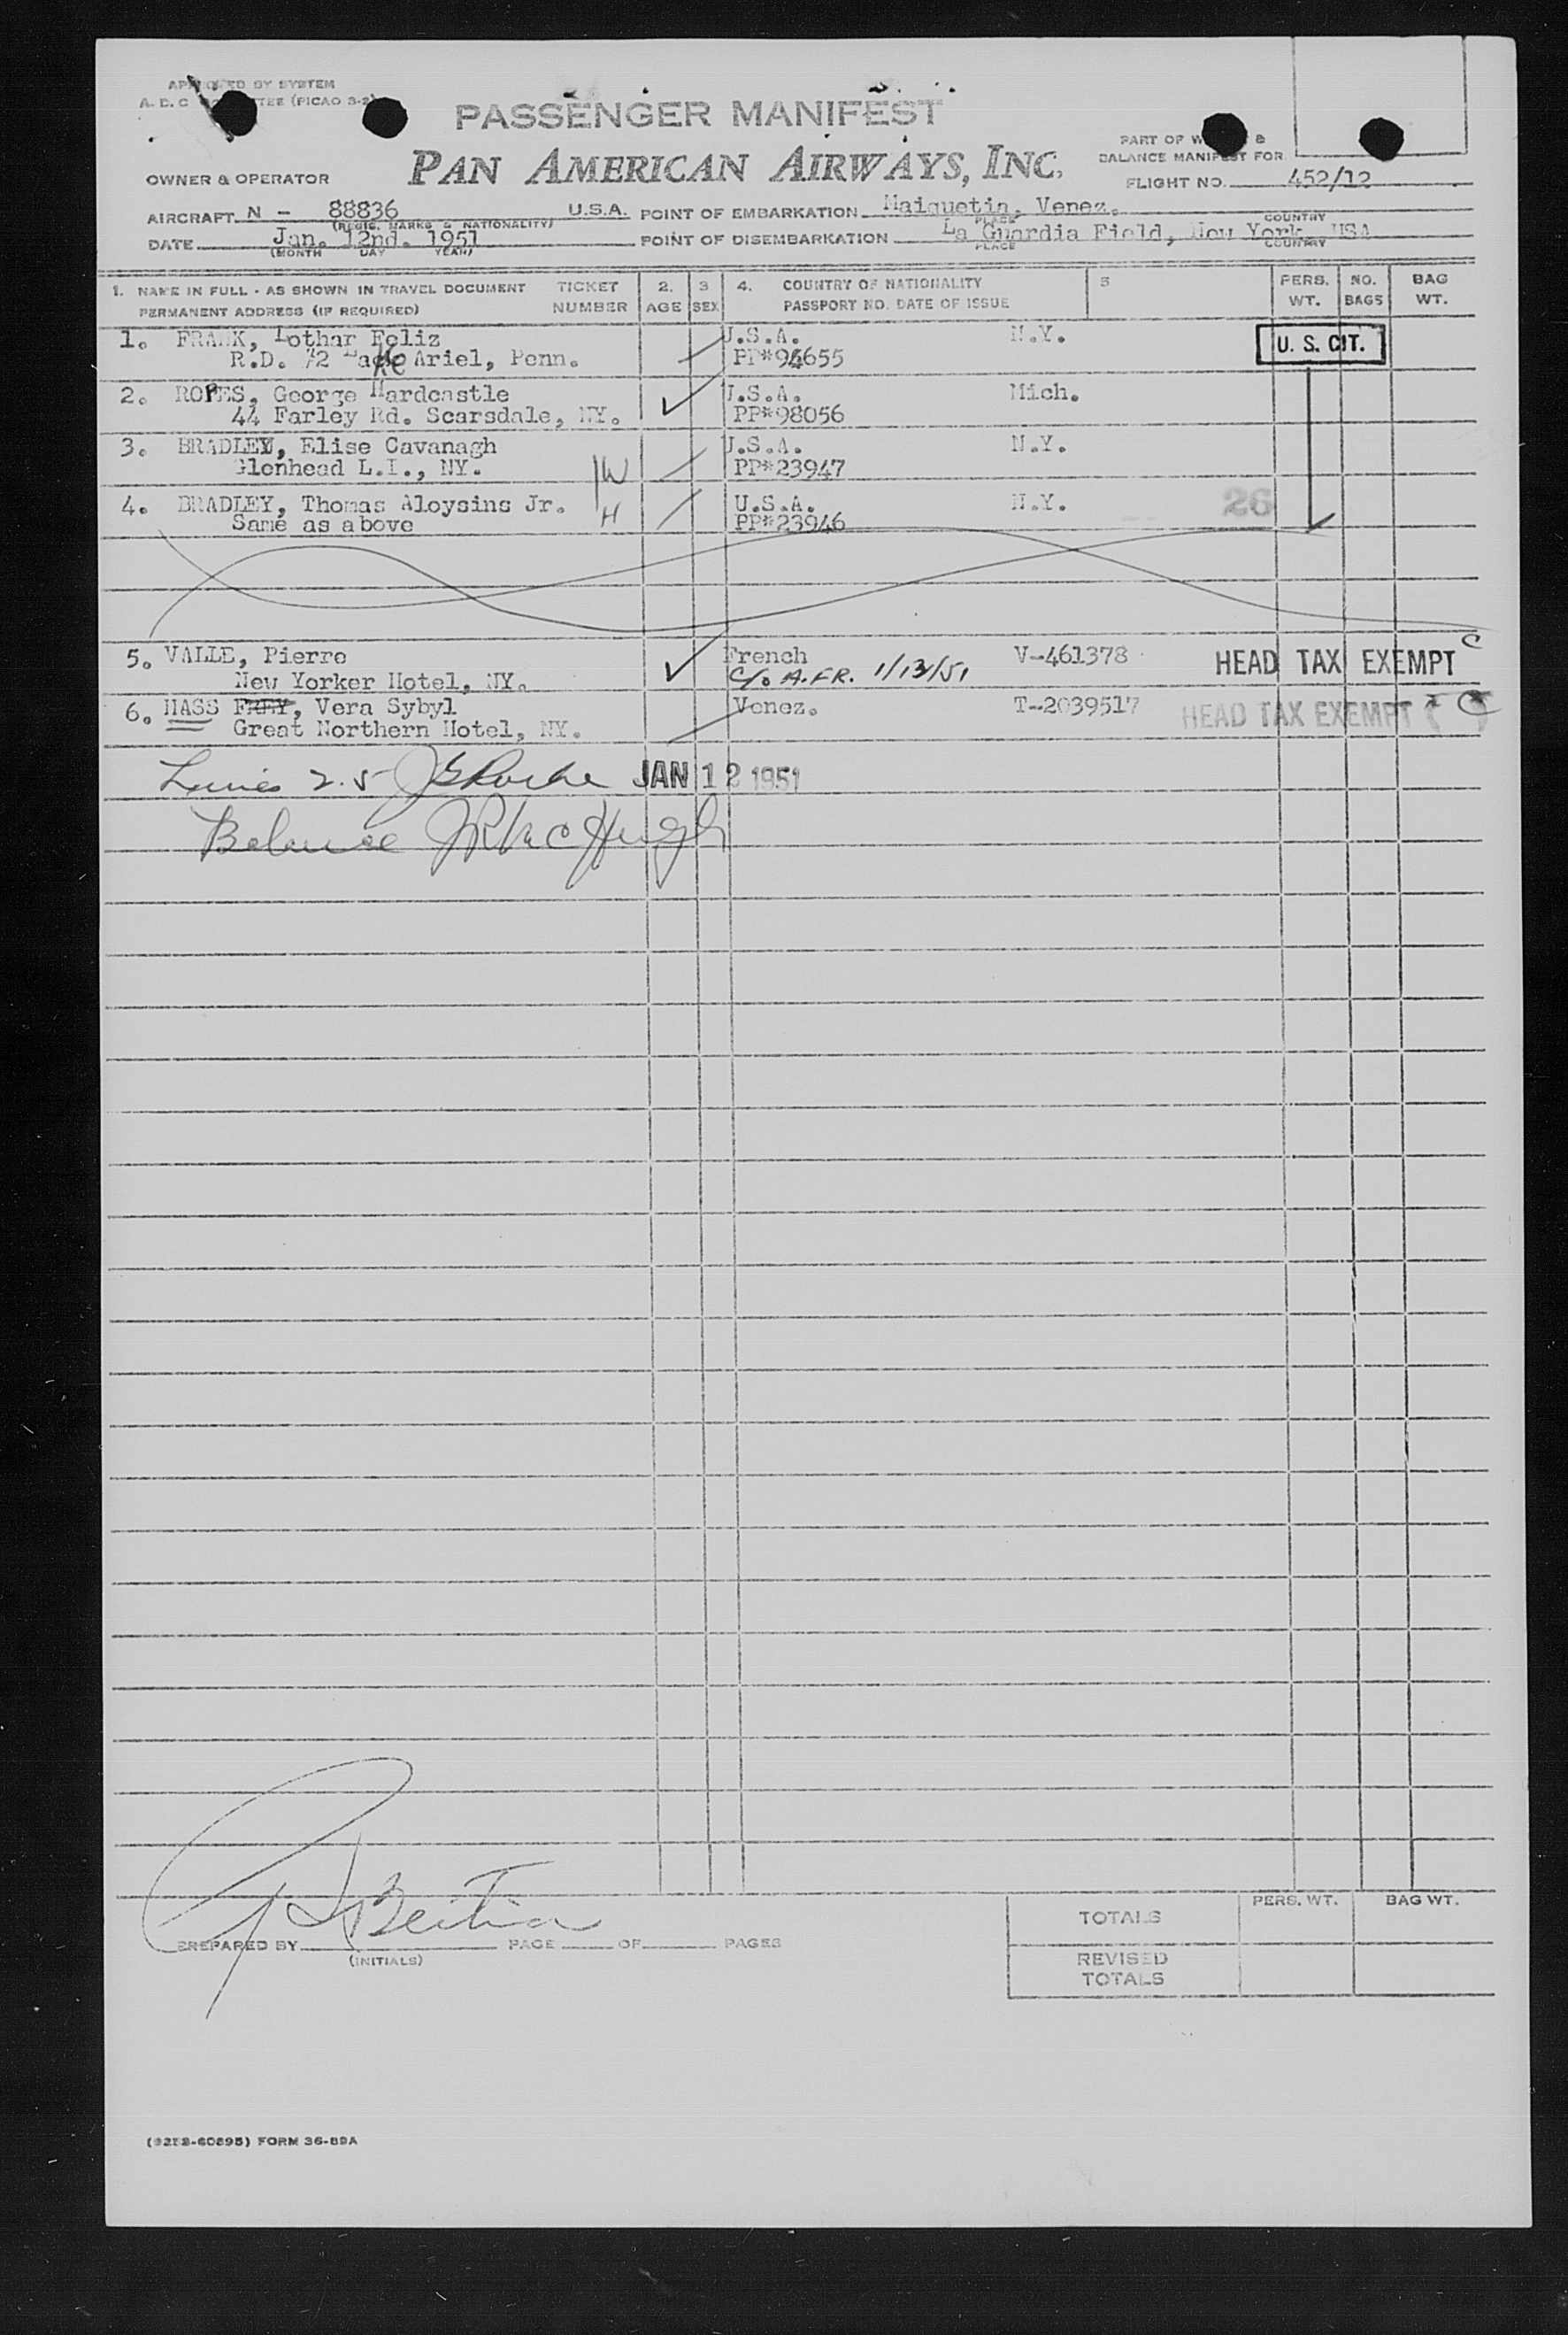 APPROVED BY SYSTEM
A. D. C COMMITTEE (PICAO 3-2)
PASSENGER MANIFEST
PAN AMERICAN AIRWAYS, INC.
PART OF W &
BALANCE MANIFEST FOR
OWNER & OPERATOR
FLIGHT NO. 452/12
AIRCRAFT N - 88836 U.S.A. POINT OF EMBARKATION Maiquetia, Venez.
(REGIS. MARKS & NATIONALITY) PLACE COUNTRY
DATE Jan. 12nd. 1951 POINT OF DISEMBARKATION La Guardia Field, New York USA
(MONTH DAY YEAR) PLACE COUNTRY
1. NAME IN FULL - AS SHOWN IN TRAVEL DOCUMENT TICKET 2. 3 4. COUNTRY OF NATIONALITY 5 PERS. NO. BAG
PERMANENT ADDRESS (IF REQUIRED) NUMBER AGE SEX PASSPORT NO. DATE OF ISSUE WT. BAGS WT.
1. FRANK, Lothar Feliz U.S.A. N.Y. U. S. CIT.
R.D. #2 Ariel, Penn. PP#94655
2. ROPES, George Hardcastle U.S.A. Mich.
44 Farley Rd. Scarsdale, NY. PP#98056
3. BRADLEY, Elise Cavanagh U.S.A. N.Y.
Glenhead L.I., NY. W PP#23947
4. BRADLEY, Thomas Aloysins Jr. U.S.A. N.Y. 26
Same as above H PP#23946
5. VALLE, Pierre French V-461378 HEAD TAX EXEMPT C
New Yorker Hotel, NY. C/o A.FR. 1/13/51
6. HASS FREY, Vera Sybyl Venez. T-2039517 HEAD TAX EXEMPT C
Great Northern Hotel, NY.
Lines 2.5 JAN 12 1951
Balance
PREPARED BY PAGE OF PAGES
(INITIALS)
PERS. WT. BAG WT.
TOTALS
REVISED
TOTALS
FORM 36-89A